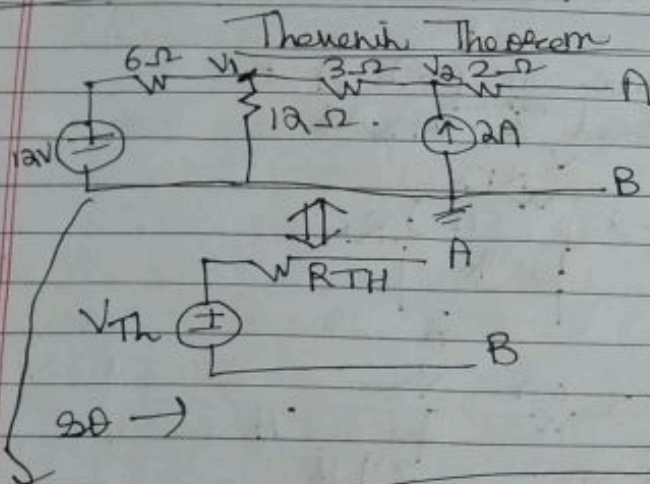 Thevenin Theorem
6Ω V1 3Ω V2 2Ω A
12Ω.
12V 2A
B
A
RTH
VTh
B